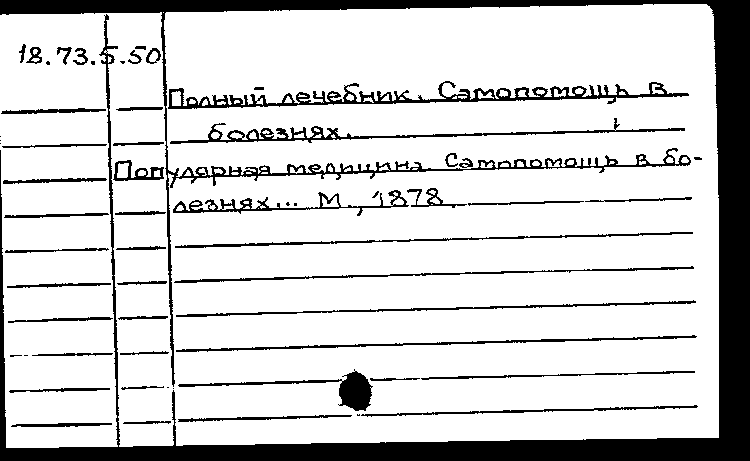 18.73.5.50
Полный лечебник. Самопомощь в
болезнях.
Популярная медицина. Самопомощь в бо-
лезнях... М., 1878.